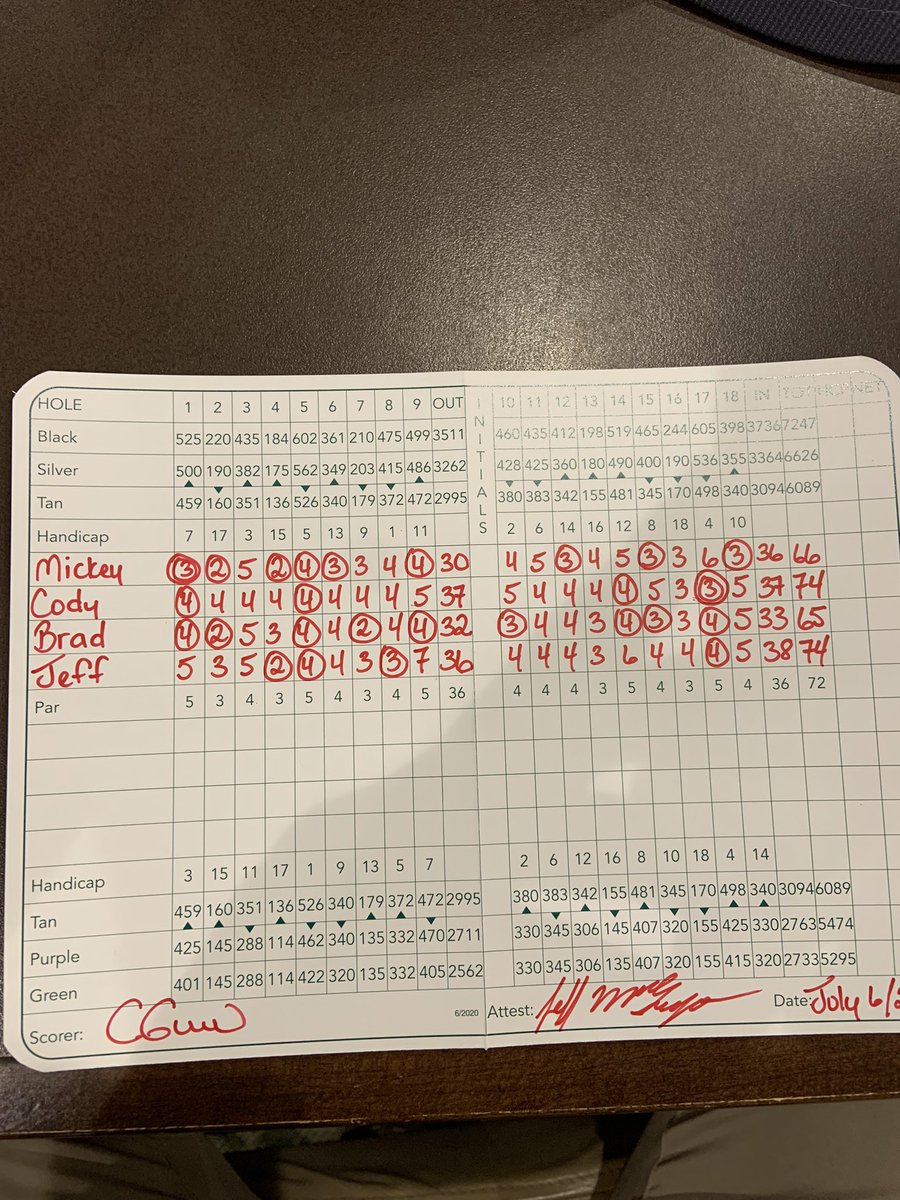 HOLE 1 2 3 4 5 6 7 8 9 OUT INITIALS 10 11 12 13 14 15 16 17 18 IN TOT HCP NET
Black 525 220 435 184 602 361 210 475 499 3511 460 435 412 198 519 465 244 605 398 3736 7247
Silver 500 190 382 175 562 349 203 415 486 3262 428 425 360 180 490 400 190 536 355 3364 6626
Tan 459 160 351 136 526 340 179 372 472 2995 380 383 342 155 481 345 170 498 340 3094 6089
Handicap 7 17 3 15 5 13 9 1 11 2 6 14 16 12 8 18 4 10
Mickey 3 2 5 2 4 3 3 4 4 30 4 5 3 4 5 3 3 6 3 36 66
Cody 4 4 4 4 4 4 4 4 5 37 5 4 4 4 4 5 3 3 5 37 74
Brad 4 2 5 3 4 4 2 4 4 32 3 4 4 3 4 3 3 4 5 33 65
Jeff 5 3 5 2 4 4 3 3 7 36 4 4 4 3 6 4 4 4 5 38 74
Par 5 3 4 3 5 4 3 4 5 36 4 4 4 3 5 4 3 5 4 36 72
Handicap 3 15 11 17 1 9 13 5 7 2 6 12 16 8 10 18 4 14
Tan 459 160 351 136 526 340 179 372 472 2995 380 383 342 155 481 345 170 498 340 3094 6089
Purple 425 145 288 114 462 340 135 332 470 2711 330 345 306 145 407 320 155 425 330 2763 5474
Green 401 145 288 114 422 320 135 332 405 2562 330 345 306 135 407 320 155 415 320 2733 5295
Scorer: 6/2020 Attest: Jeff Date: July 6/2